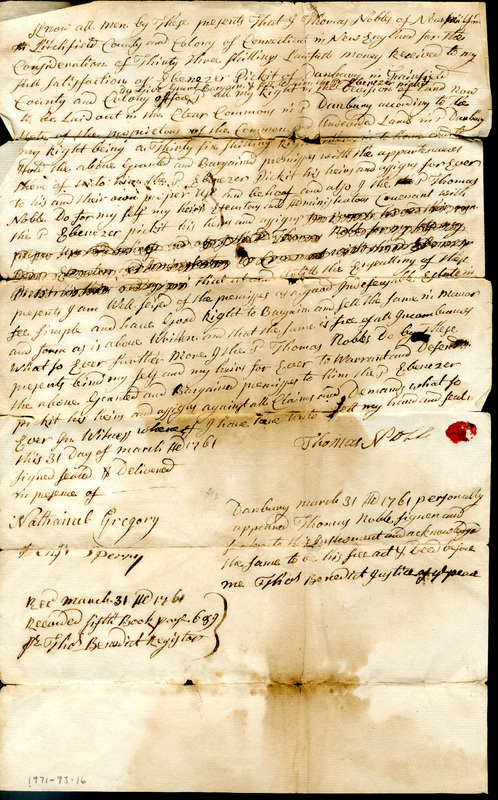 Know all men by These presents That I Thomas Noble of New
in Litchfield County and Colony of Connecticut in New England for the
Consideration of Thirty Three shillings Lawfull money Received to my
full Satisfaction of Ebenezer Pickit of Danbury in Fairfield
County and Colony all my Right in the Division of Land Now
to be Laid out in the Clear Commons in Danbury according to
of the of the Common and Undivided Land in Danbury
my Right being a Thirty Six shilling Right To have and to
Hold the above Granted and Bargained premises with the appurtenances
thereof unto him the Ebenezer Pickit his heirs and assigns for Ever
to his and their own proper use and behoof and also I the Thomas
Noble Do for my self my heirs Executors and Administrators Covenant with
the Ebenezer pickit his heirs and assigns
that at and Untill the Ensealing of these
presents I am Well seised of the premises as a good Indefeasible Estate in
fee simple and have Good Right to Bargain and sell the same in Manor
and form as is above Written and that the same is free of all Incumbrances
What so Ever Further More I the Thomas Noble Do by These
presents bind my self and my heirs for Ever to Warrant and Defend
the above Granted and Bargained premises to him the Ebenezer
pickit his heirs and assigns against all Claims and Demands what so
Ever In Witness whereof I have here unto sett my hand and seal
this 31 Day of march AD 1761
Thomas Noble
signed sealed & Delivered
in presence of
Nathanul Gregory
Sperry
Danbury march 31 AD 1761 personally
appeared Thomas Noble signer and
to this Instrument and acknowledged
the same to be his free act & Deed before
me Thos Benedict Justice of ye peace
Recd march 31 AD 1761
Recorded fifth Book page 689
pr Thos Benedict Register
1971-93-16